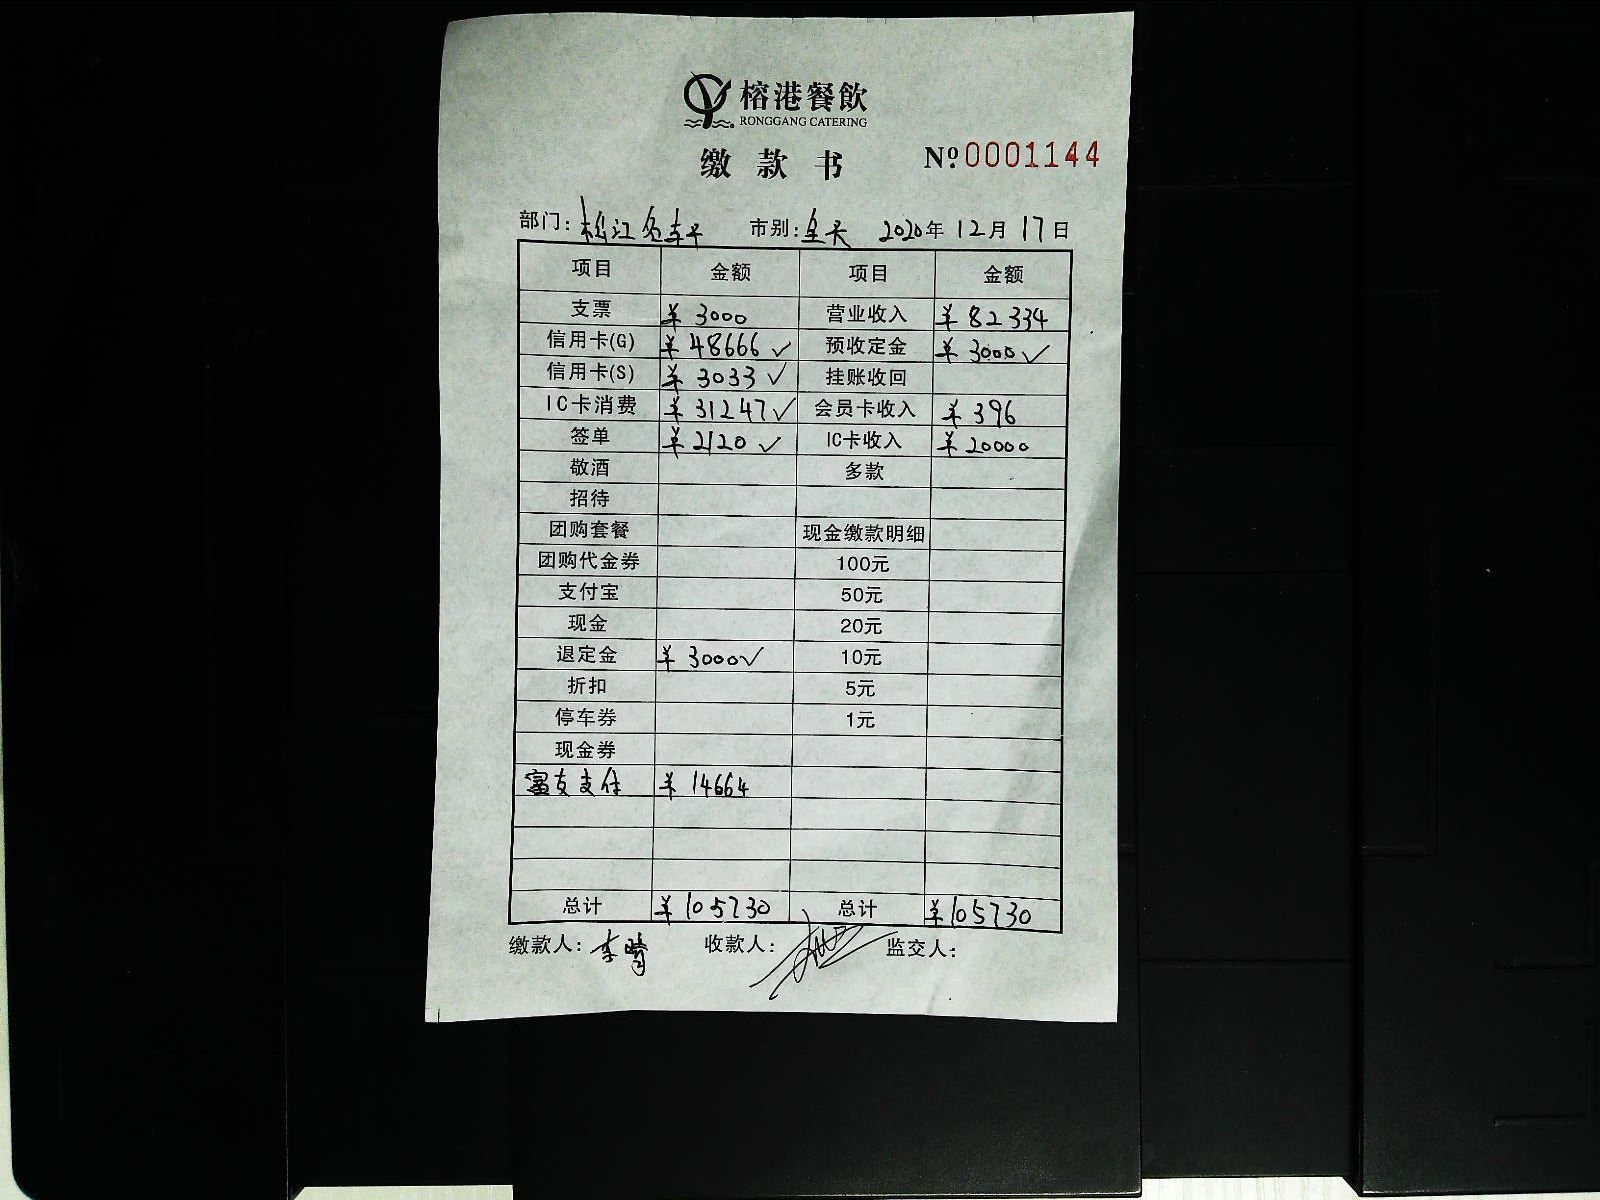 榕港餐飲
RONGGANG CATERING
缴款书 Nº 0001144
部门: 松江 市别: 全天 2020年12月17日
项目 金额 项目 金额
支票 ¥3000 营业收入 ¥82334
信用卡(G) ¥48666✓ 预收定金 ¥3000✓
信用卡(S) ¥3033✓ 挂账收回
IC卡消费 ¥31247✓ 会员卡收入 ¥396
签单 ¥2120✓ IC卡收入 ¥20000
敬酒 多款
招待
团购套餐 现金缴款明细
团购代金券 100元
支付宝 50元
现金 20元
退定金 ¥3000✓ 10元
折扣 5元
停车券 1元
现金券
富友支付 ¥14664
总计 ¥105730 总计 ¥105730
缴款人: 收款人: 监交人: